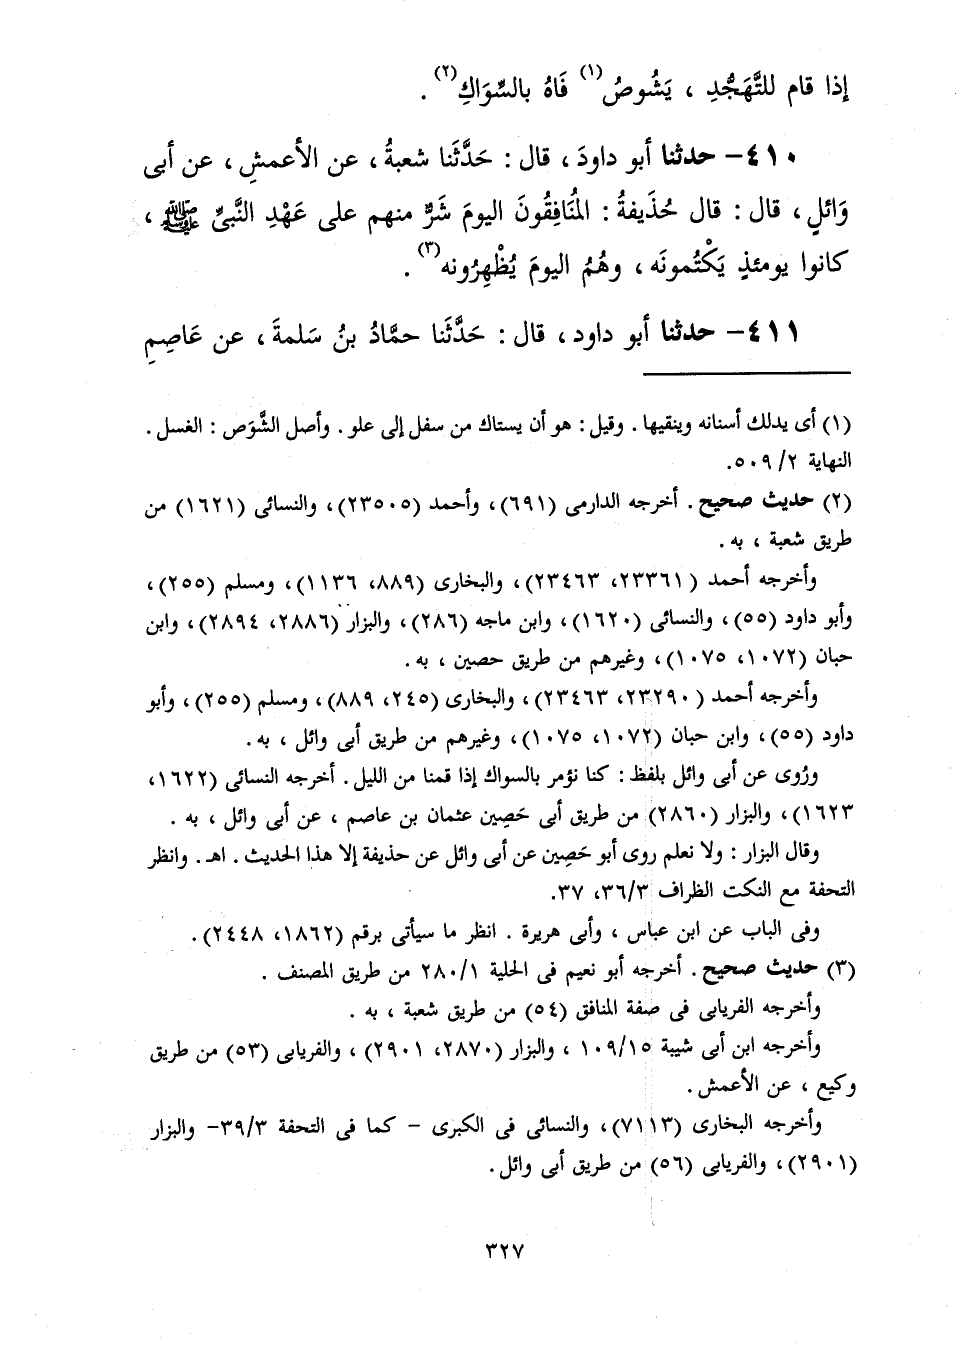 إذا قام للتَّهَجُّدِ ، يَشُوصُ(١) فَاهُ بالسِّوَاكِ(٢) .
٤١٠- حدثنا أبو داودَ ، قال : حَدَّثَنا شعبةُ ، عن الأعمشِ ، عن أبى
وَائلٍ ، قال : قال حُذَيفةُ : المُنَافِقُونَ اليومَ شَرٌّ منهم على عَهْدِ النَّبىِّ ﷺ ،
كانوا يومئذٍ يَكْتُمونَه ، وهُمُ اليومَ يُظْهِرُونه(٣) .
٤١١- حدثنا أبو داود ، قال : حَدَّثَنا حمَّادُ بنُ سَلمةَ ، عن عَاصِمِ
(١) أى يدلك أسنانه وينقيها . وقيل : هو أن يستاك من سفل إلى علو . وأصل الشَّوَص : الغسل .
النهاية ٢/ ٥٠٩.
(٢) حديث صحيح . أخرجه الدارمى (٦٩١) ، وأحمد (٢٣٥٠٥) ، والنسائى (١٦٢١) من
طريق شعبة ، به .
وأخرجه أحمد ( ٢٣٣٦١، ٢٣٤٦٣) ، والبخارى (٨٨٩، ١١٣٦) ، ومسلم (٢٥٥) ،
وأبو داود (٥٥) ، والنسائى (١٦٢٠) ، وابن ماجه (٢٨٦) ، والبزار (٢٨٨٦، ٢٨٩٤) ، وابن
حبان (١٠٧٢، ١٠٧٥) ، وغيرهم من طريق حصين ، به .
وأخرجه أحمد ( ٢٣٢٩٠، ٢٣٤٦٣) ، والبخارى (٢٤٥، ٨٨٩) ، ومسلم (٢٥٥) ، وأبو
داود (٥٥) ، وابن حبان (١٠٧٢، ١٠٧٥) ، وغيرهم من طريق أبى وائل ، به .
ورُوى عن أبى وائل بلفظ : كنا نؤمر بالسواك إذا قمنا من الليل . أخرجه النسائى (١٦٢٢،
١٦٢٣) ، والبزار (٢٨٦٠) من طريق أبى حَصِين عثمان بن عاصم ، عن أبى وائل ، به .
وقال البزار : ولا نعلم روى أبو حَصِين عن أبى وائل عن حذيفة إلا هذا الحديث . اهـ . وانظر
التحفة مع النكت الظراف ٣٦/٣، ٣٧.
وفى الباب عن ابن عباس ، وأبى هريرة . انظر ما سيأتى برقم (١٨٦٢، ٢٤٤٨) .
(٣) حديث صحيح . أخرجه أبو نعيم فى الحلية ٢٨٠/١ من طريق المصنف .
وأخرجه الفريابى فى صفة المنافق (٥٤) من طريق شعبة ، به .
وأخرجه ابن أبى شيبة ١٠٩/١٥ ، والبزار (٢٨٧٠، ٢٩٠١) ، والفريابى (٥٣) من طريق
وكيع ، عن الأعمش .
وأخرجه البخارى (٧١١٣) ، والنسائى فى الكبرى - كما فى التحفة ٣٩/٣- والبزار
(٢٩٠١) ، والفريابى (٥٦) من طريق أبى وائل .
٣٢٧